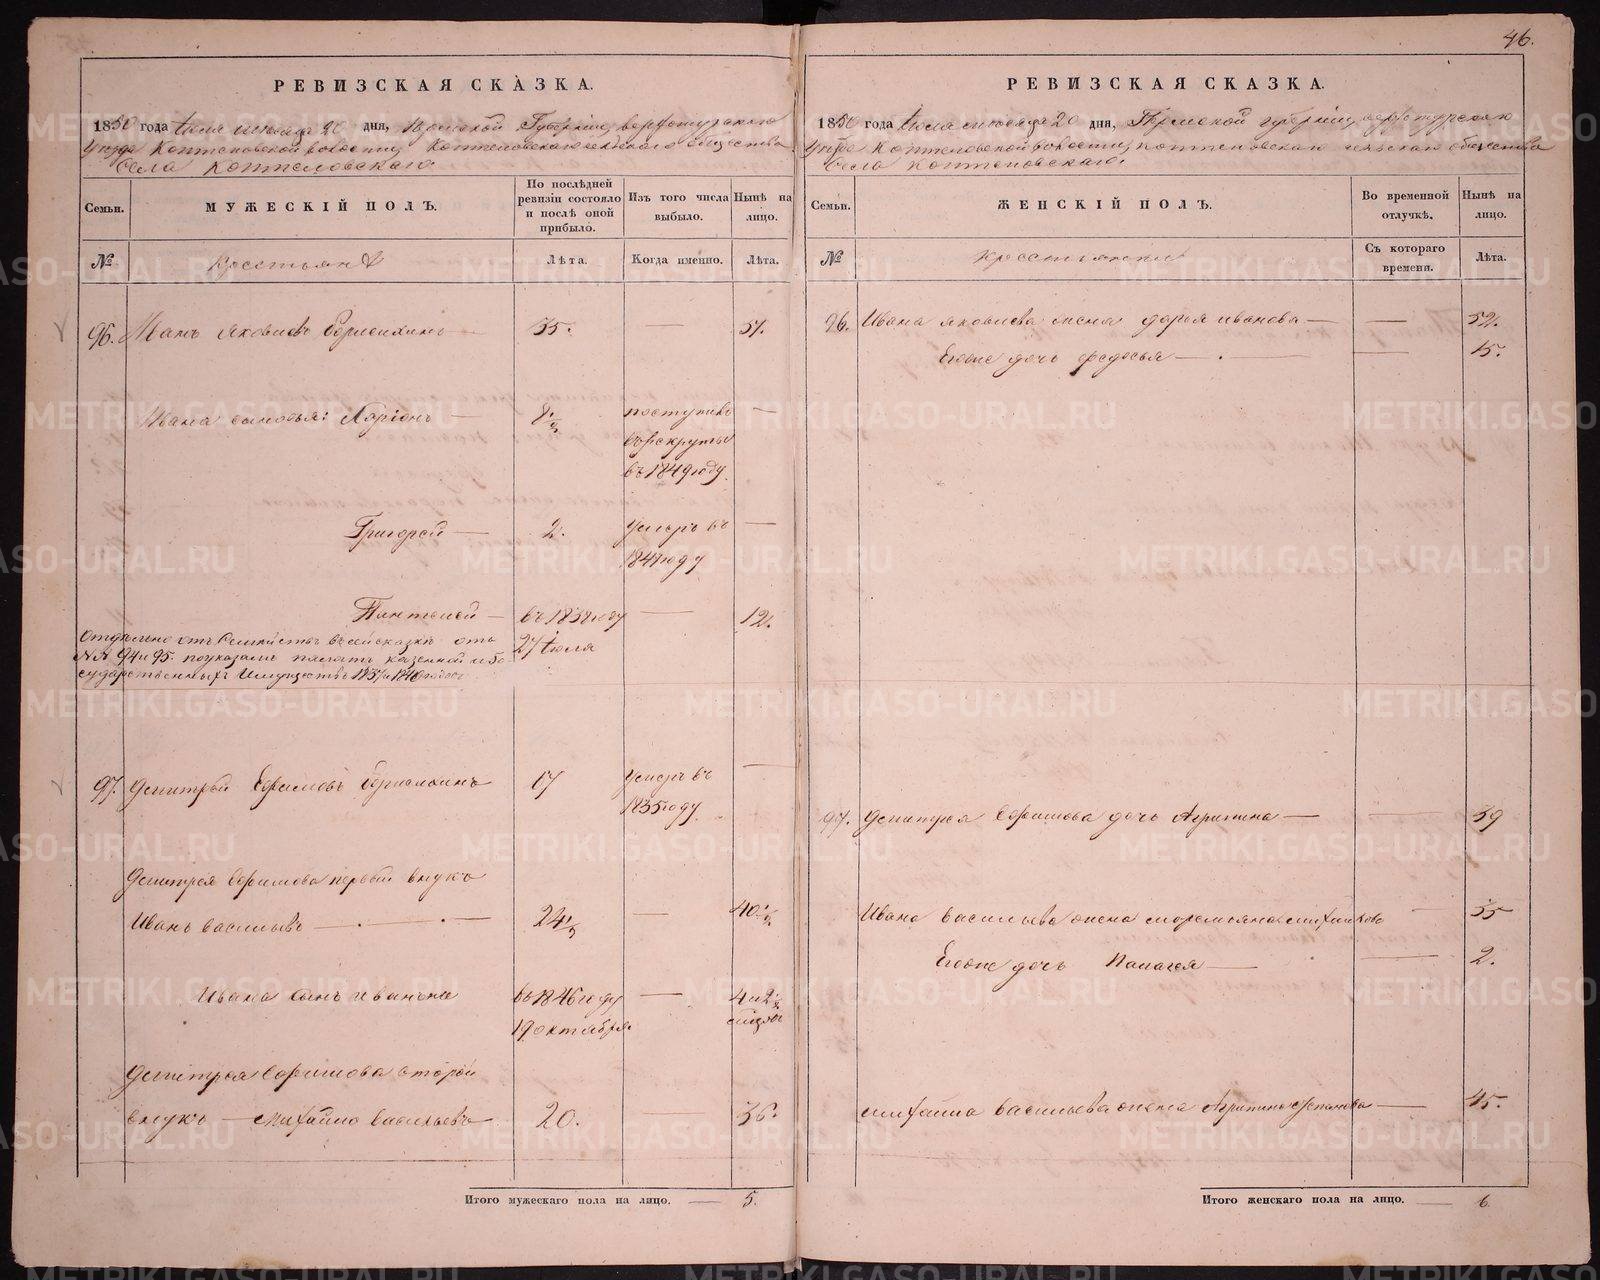 46.
РЕВИЗСКАЯ СКАЗКА.
1850 года Июля месяца 20 дня, Пермской Губернии, верхотурскаго
Уезда Коптеловской волости, Коптеловскаго сельскаго общества
Села Коптеловскаго
Семьи.
МУЖЕСКІЙ ПОЛЪ.
По послѣдней ревизіи состояло и послѣ оной прибыло.
Изъ того числа выбыло.
Нынѣ на лицо.
№
Крестьянъ
Лѣта.
Когда именно.
Лѣта.
96. Иванъ Яковлевъ 35. — 51.
Ивана сыновья: Ларіонъ — 8 1/2 поступилъ —
въ рекруты
въ 1849 году
Григорей — 2. умеръ въ —
1841 году
Пантелей — въ 1838 году — 12.
27 Июля
Отдѣльно отъ Семейства въ сей сказкѣ отъ
№№ 94 и 95. по указамъ палатъ казенной и го-
сударственныхъ Имуществъ
97. Дмитрей Ефимовъ умеръ въ —
1835 году
Дмитрея Ефимова первый внукъ
Иванъ Васильевъ — 24 1/2 — 40 1/2
Ивана Сынъ въ 1846 году — 4 и 2
19 октября месяц
Дмитрея Ефимова второй
внукъ — Михайло Васильевъ 20. — 36.
Итого мужескаго пола на лицо. — 5.
РЕВИЗСКАЯ СКАЗКА.
1850 года Июля месяца 20 дня, Пермской губернии, верхотурскаго
Уезда Коптеловской волости, коптеловскаго сельскаго общества
Села Коптеловскаго.
Семьи.
ЖЕНСКІЙ ПОЛЪ.
Во временной отлучкѣ.
Нынѣ на лицо.
№
Крестьянскии
Съ котораго времени.
Лѣта.
96. Ивана Яковлева жена дарья иванова — — 52.
Егоже дочь федосья — — 15.
97. Дмитрея Ефимова дочь Агрипина — — 39
Ивана васильева жена — 35
Егоже дочь Палагея — — 2.
Михайла Васильева жена Агрипина Степанова — — 45.
Итого женскаго пола на лицо. — 6.
METRIKI.GASO-URAL.RU